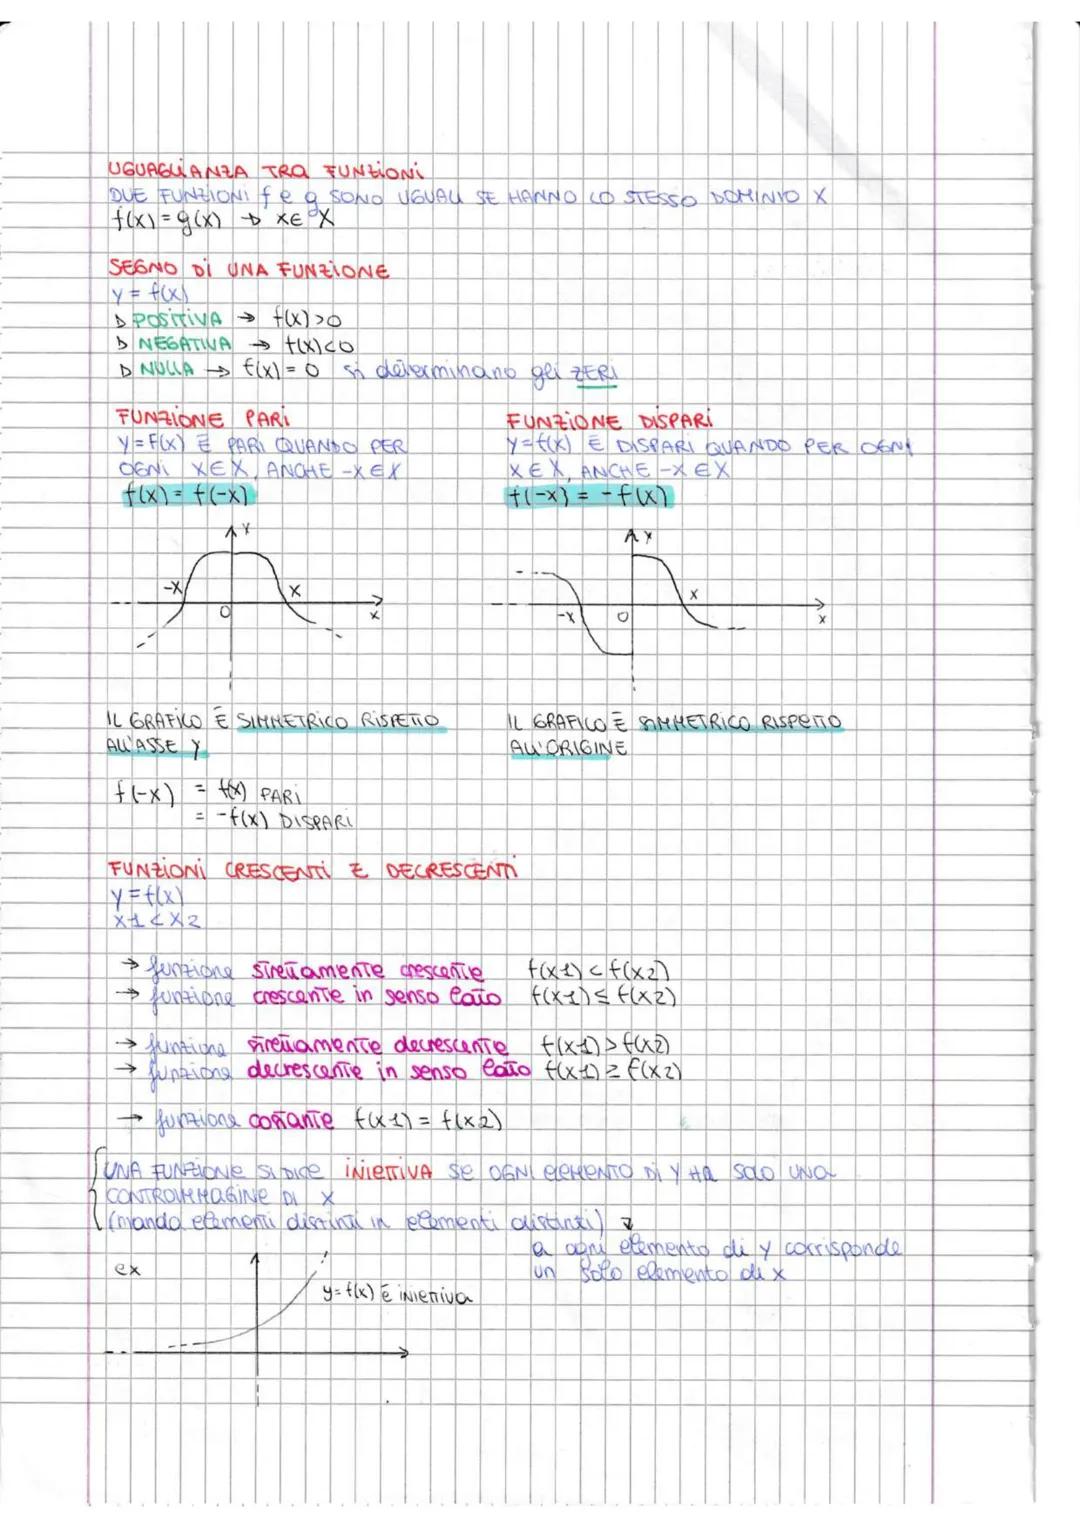 UGUAGLIANZA TRA FUNZIONI
DUE FUNZIONI f e g SONO UGUALI SE HANNO LO STESSO DOMINIO X
f(x) = g(x) → x∈X
SEGNO DI UNA FUNZIONE
y = f(x)
▷ POSITIVA → f(x)>0
▷ NEGATIVA → f(x)<0
▷ NULLA → f(x)=0 si determinano gli ZERI
FUNZIONE PARI
y=F(x) È PARI QUANDO PER
OGNI X∈X, ANCHE -X∈X
f(x) = f(-x)
FUNZIONE DISPARI
y=f(x) È DISPARI QUANDO PER OGNI
X∈X, ANCHE -X∈X
f(-x) = -f(x)
y
-x
x
0
x
y
x
-x
0
x
IL GRAFICO È SIMMETRICO RISPETTO
ALL'ASSE Y
IL GRAFICO È SIMMETRICO RISPETTO
ALL'ORIGINE
f(-x) = f(x) PARI
= -f(x) DISPARI
FUNZIONI CRESCENTI E DECRESCENTI
y=f(x)
x1<x2
→ funzione strettamente crescente f(x1)<f(x2)
→ funzione crescente in senso lato f(x1)≤f(x2)
→ funzione strettamente decrescente f(x1)>f(x2)
→ funzione decrescente in senso lato f(x1)≥f(x2)
→ funzione costante f(x1) = f(x2)
UNA FUNZIONE SI DICE INIETTIVA SE OGNI ELEMENTO DI Y HA SOLO UNA
CONTROIMMAGINE DI X
(manda elementi distinti in elementi distinti)
a ogni elemento di y corrisponde
un solo elemento di x
ex
y=f(x) è iniettiva